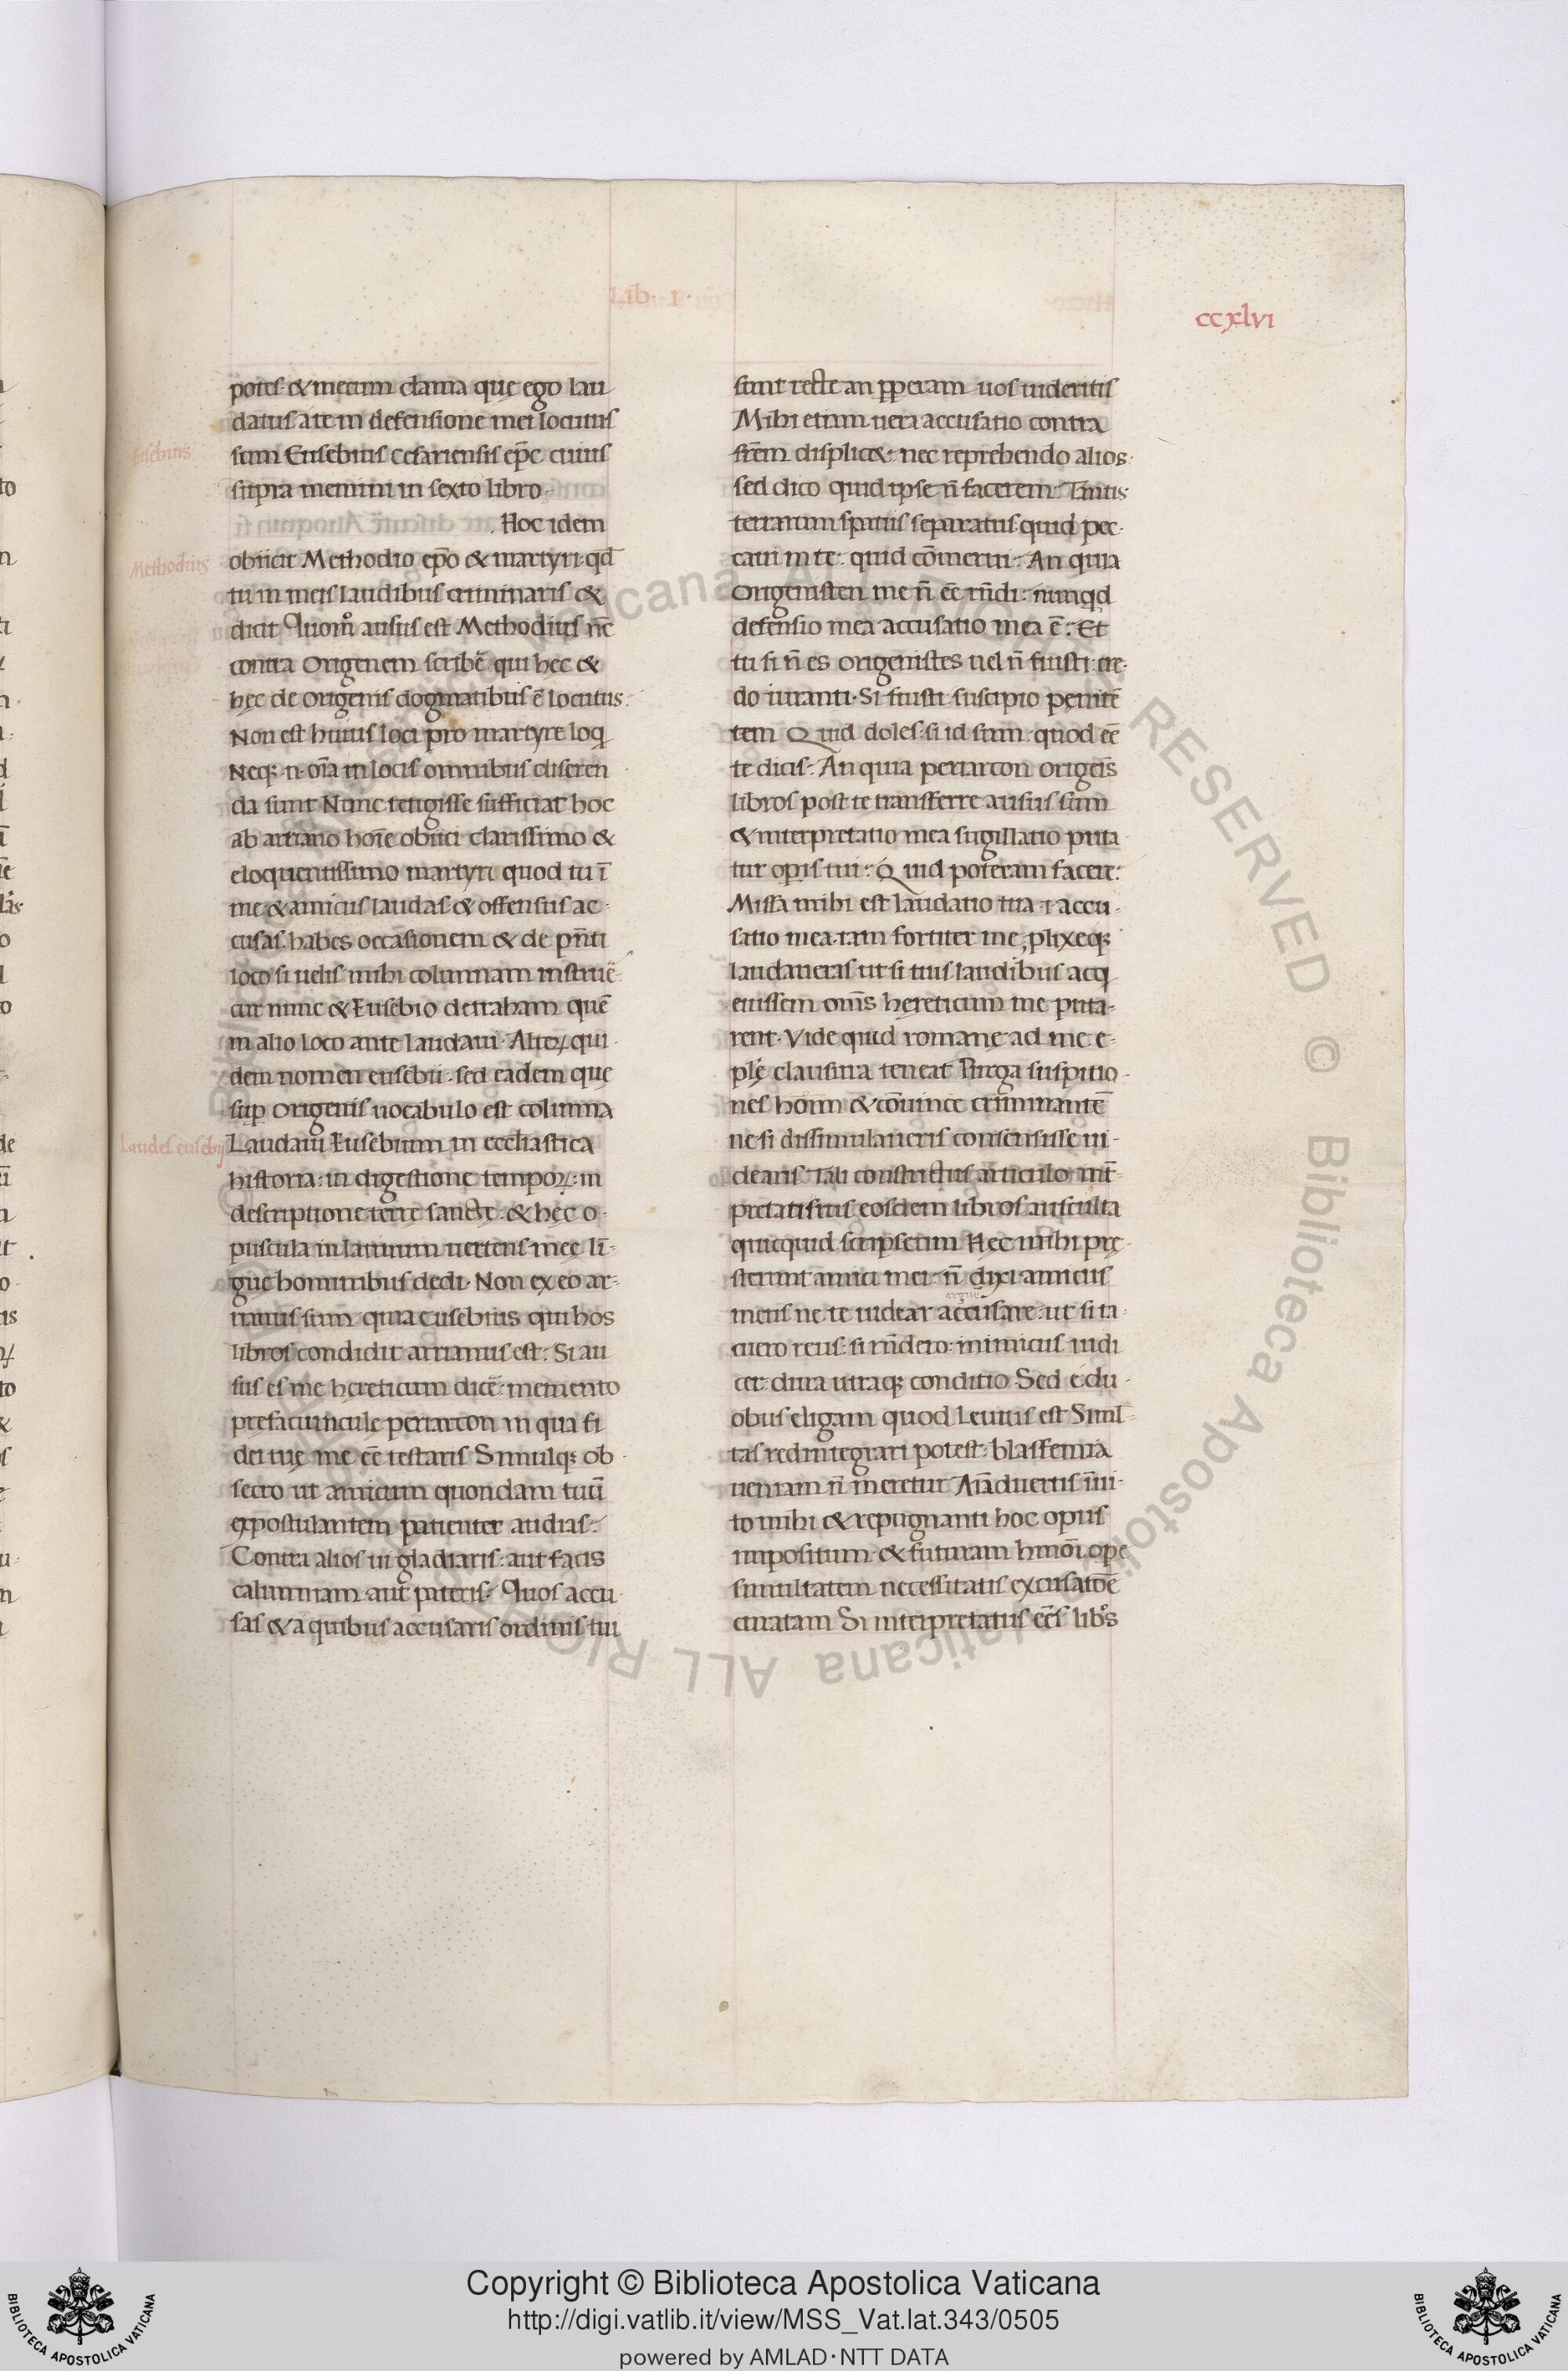 Lib. I.
ccxlvi
potes. & mecum clama quę ego lau
datus a te in defensione mei locutus
Eusebius
sum Eusebius cesariensis ep̄c cuius
supra memini in sexto libro
Hoc idem
Methodius
obiicit Methodio ep̄o & martyri. qd̄
tu in meis laudibus criminaris &
dicit Quom̊ ausus est Methodius nc̄
contra Origenem scribē qui hec &
hęc de origenis dogmatibus ē locutus.
Non est huius loci pro martyre loq
Neq; .n. oīa in locis omnibus diseren
da sunt Nunc tetigisse sufficiat hoc
ab arriano hoīe obiici clarissimo &
eloquentissimo martyri quod tu ī
me & amicus laudas & offensus ac-
cusas. habes occasionem & de pn̄ti
loco si uelis mihi calumniam instrue-
cur nunc & Eusebio detraham quē
in alio loco ante laudaui. Alteꝝ qui-
dem nomen eusebii. sed eadem quę
sup̱ Origenis uocabulo est columna
Laudes eusebij
Laudaui Eusebium in ecclesiastica
historia: in digestione tempoꝝ: in
descriptione terrę sanctę: & hęc o-
puscula in latinum uertens meę lī-
guę hominibus dedi. Non ex eo ar-
rianus sum. quia eusebius qui hos
libros condidit arrianus est. Si au
sus es me hereticum dicē: memento
prefaciunculę periarcon in qua fi
dei tuę me eē testaris Simulq; ob-
secro ut amicum quondam tuū
expostulantem patienter audias.
Contra alios ui gladiaris: aut facis
calumniam. aut pateris. Quos accu-
sas & a quibus accusaris ordinis tui
sunt recte an ꝑperam uos uideritis
Mihi etiam uera accusatio contra
frēm displic&. nec reprehendo alios.
sed dico quid ipse n̄ facerem. Tantis
terrarum spatiis separatus. quid pec-
caui in te. quid cōmerui. An quia
origenisten me n̄ eē rn̄di: nunqd
defensio mea accusatio mea ē. Et
tu si n̄ es origenistes uel n̄ fuisti: cre-
do iuranti. Si fuisti suscipio penitē
tem Quid doles: si id sum. quod eē
te dicis. An quia periarcon origeīs
libros post te transferre ausus sum
& interpretatio mea sugillatio puta
tur oꝑis tui. Quid poteram facere.
Missa mihi est laudatio tua .i. accu-
satio mea. tam fortiter me, ꝓlixeq;
laudaueras ut si tuis laudibus acq
euissem om̄s hęreticum me puta-
rent. Vide quid romanę ad me e-
plę clausula teneat Purga suspitio-
nes homī & cōuince criminantē
ne si dissimulaueris consensisse ui-
dearis. Tali constrictus articulo int̄-
pretatus eosdem libros ausculta
quicquid scripserim Nec mihi prę-
sterunt amici mei. n̄ dixi amicus
argue
meus ne te uidear accusare. ut si ta-
cuero reus: si rn̄dero: inimicus iudi
cer: dura utraq; conditio Sed e du-
obus eligam quod leuius est Simul-
tas redintegrari potest: blasfemia
ueniam n̄ meretur Aīaduertis īui-
to mihi & repugnanti hoc opus
impositum. & futuram hmōi ope
simultatem necessitatis excusatōe
curatam Si interpretatus eēs libꝛ̊s